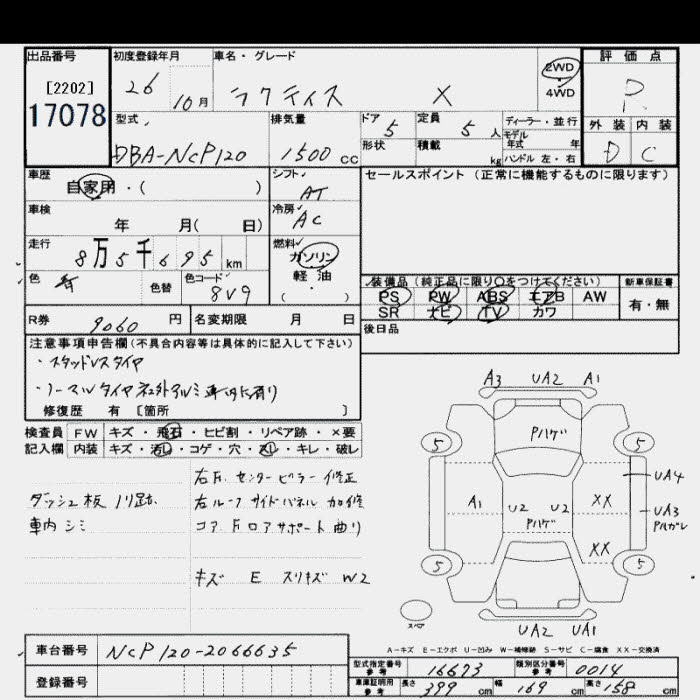 出品番号 初度登録年月 車名・グレード 2WD 4WD 評価点
[2202] 26 10月 ラクティス X R
17078
型式 排気量 ドア 5 定員 5人 ディーラー・並行 外装 内装
形状 積載 kg モデル年式 年 D C
DBA-NCP120 1500cc ハンドル 左・右
車歴 自家用・( ) シフト AT セールスポイント(正常に機能するものに限ります)
車検 年 月( 日) 冷房 AC
走行 8万5千695km 燃料 ガソリン 軽油 ( )
色 色替 色コード 8V9
装備品(純正品に限り○をつけてください) 新車保証書
PS PW ABS エアB AW 有・無
SR ナビ TV カワ
R券 9060円 名変期限 月 日 後日品
注意事項申告欄(不具合内容等は具体的に記入して下さい)
・スタッドレスタイヤ
・ノーマルタイヤ社外アルミ 車内に有り
修復歴 有 [箇所 ]
検査員 FW キズ・飛石・ヒビ割・リペア跡・×要
記入欄 内装 キズ・汚れ・コゲ・穴・スレ・キレ・破レ
右Fr. センターピラー修正
ダッシュ板 ノリ跡 右ルーフサイドパネル 加修
車内シミ コアFロアサポート曲り
キズ E スリキズ W2
A3 UA2 A1
Pハゲ
5 5
UA4
A1 U2 U2 XX UA3
Pハゲ Pハガレ
XX
5 5
スペア
UA2 UA1
A-キズ E-エクボ U-凹み W-補修跡 S-サビ C-腐食 XX-交換済
車台番号 NCP120-2066635
登録番号
型式指定番号 参考 16673 類別区分番号 参考 0014
車庫証明用 参考 長さ 399cm 幅 169cm 高さ 158cm